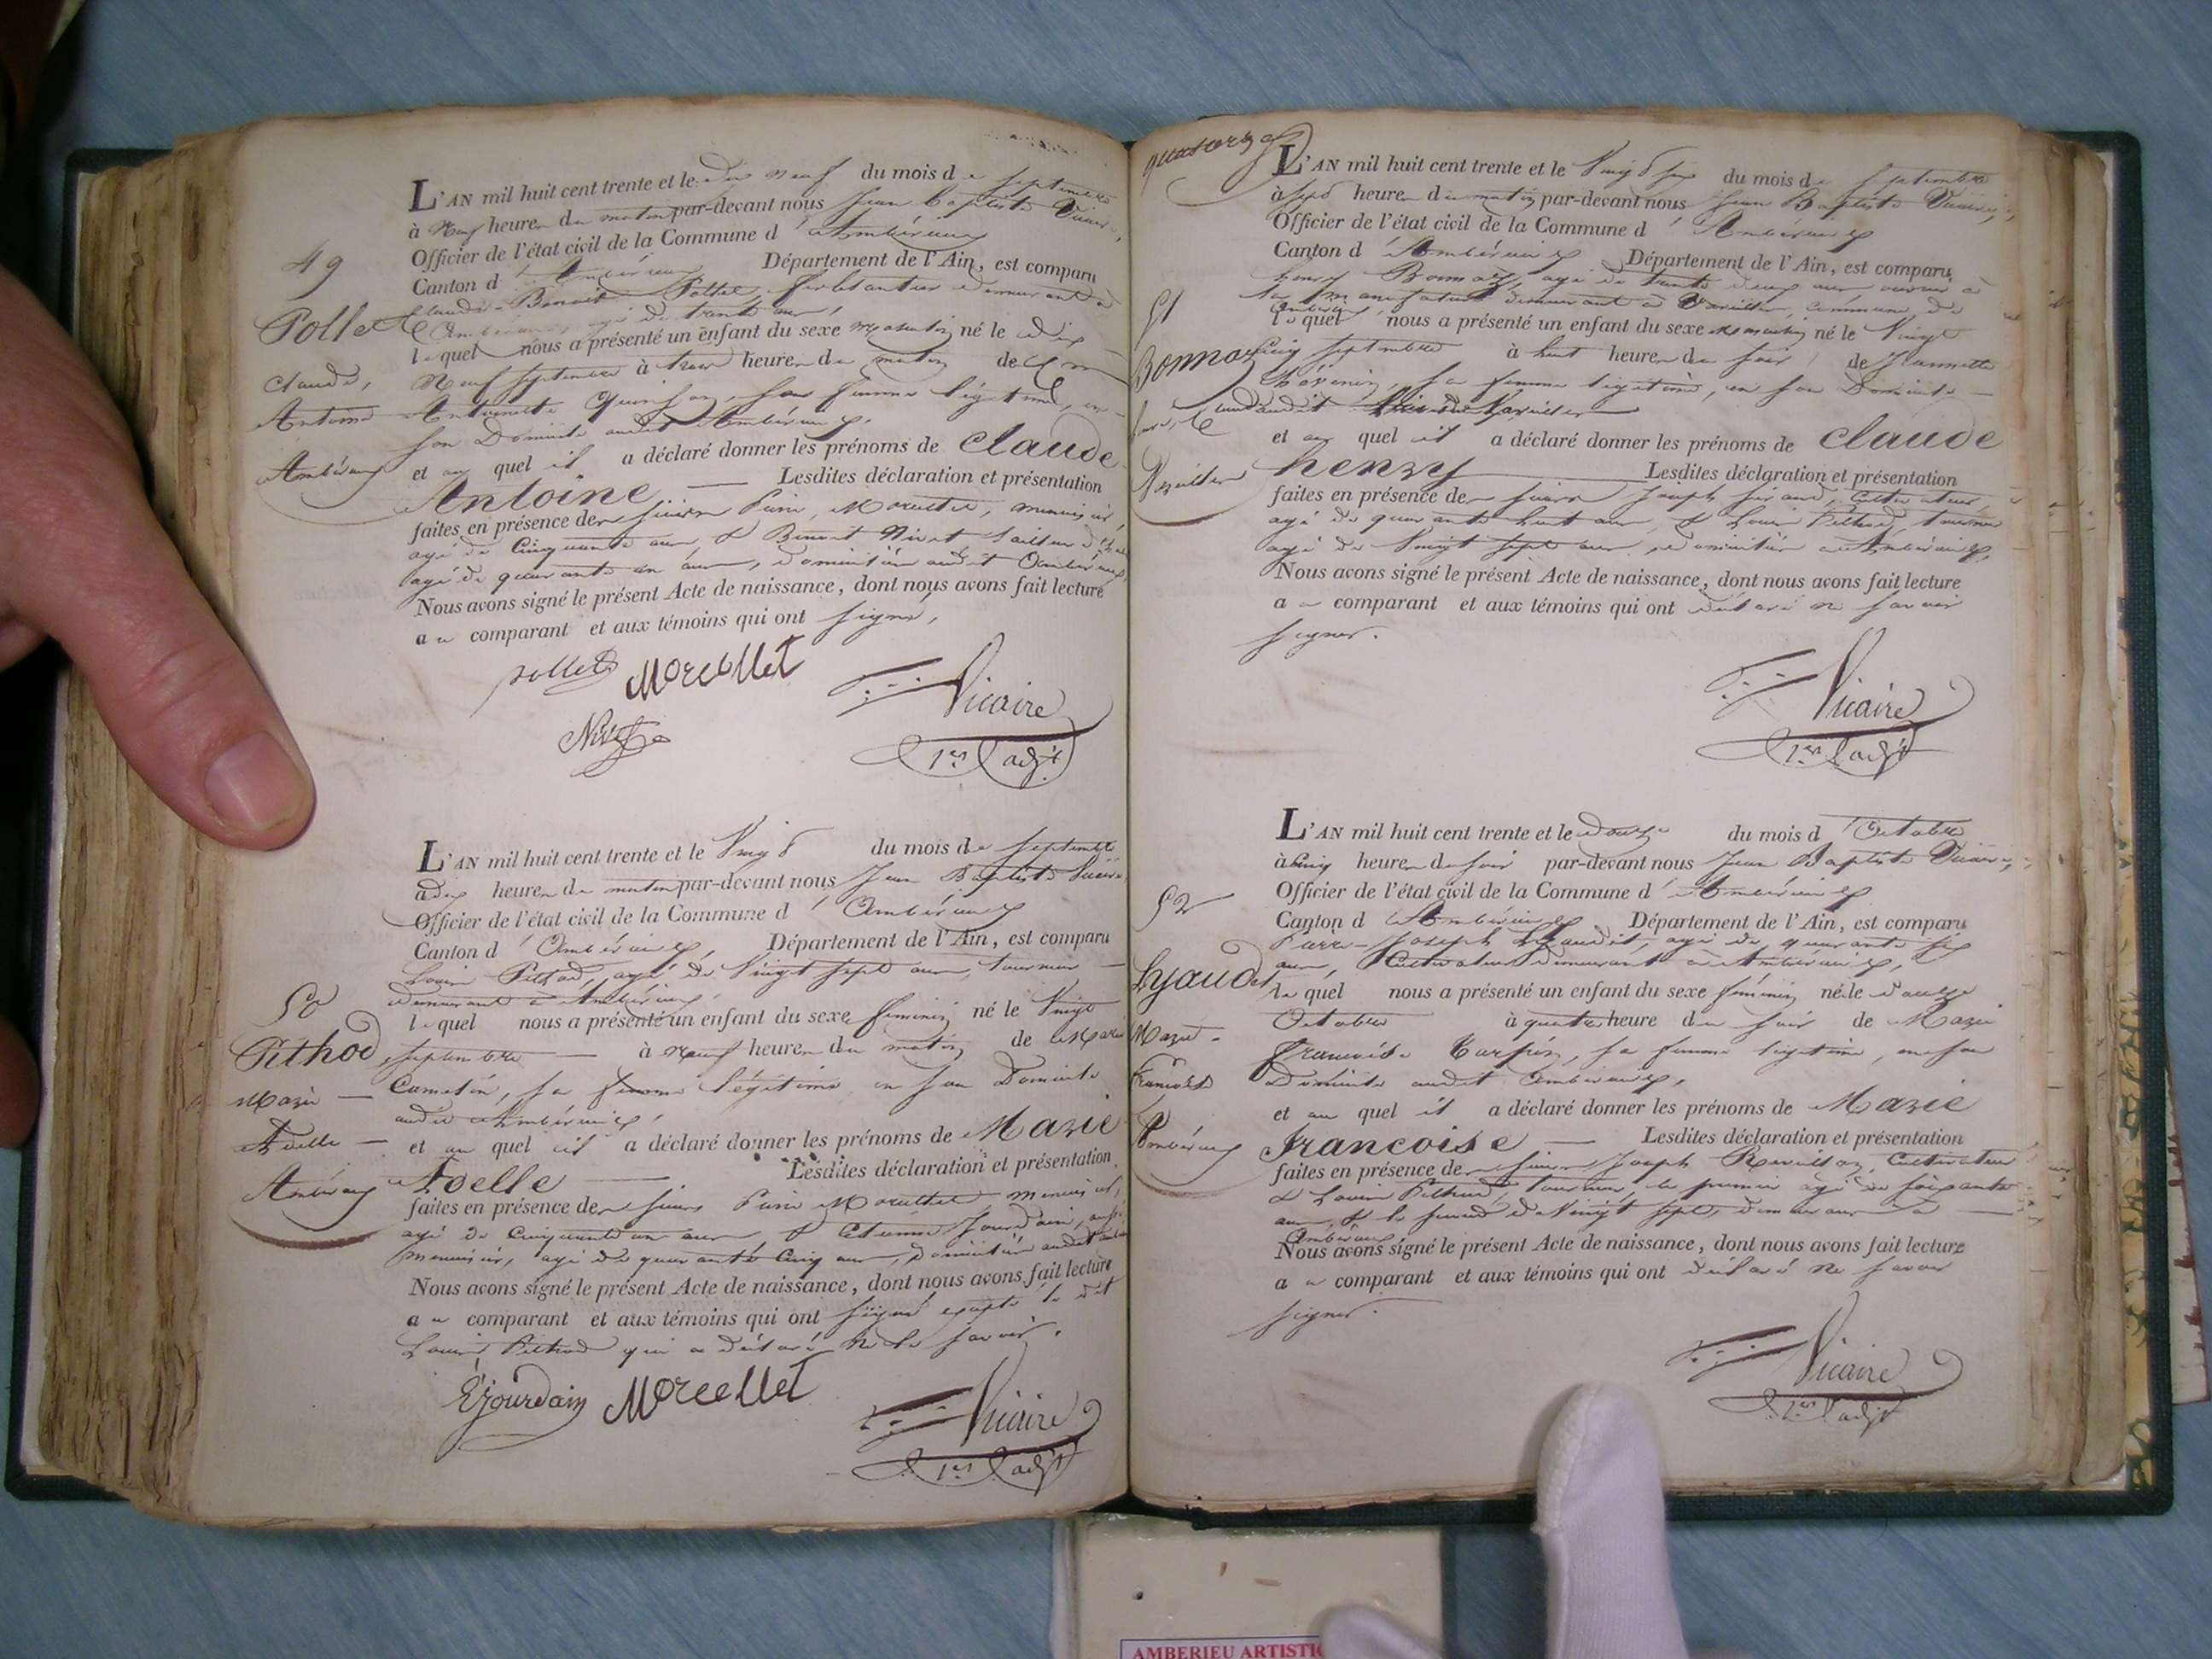 49
Pollet
Claude,
Antoine
Ambérieux
L'AN mil huit cent trente et le dix neuf du mois de septembre
à Neuf heures du matin par-devant nous Jean Baptiste Vicaire,
Officier de l'état civil de la Commune d'Ambérieux
Canton d'Ambérieux Département de l'Ain, est comparu
Claude-Benoit Pollet ferblantier demeurant à
Ambérieux, agé de trente ans,
lequel nous a présenté un enfant du sexe masculin né le dix
Neuf septembre à trois heures du matin de
Antoinette Quinson, sa femme légitime, en
son Domicile audit Ambérieux,
et auquel il a déclaré donner les prénoms de Claude
Antoine — Lesdites déclaration et présentation
faites en présence des sieurs Pierre Morcellet, menuisier,
agé de Cinquante ans, & Benoit Nivet tailleur
agé de quarante un ans, domiciliés audit Ambérieux
Nous avons signé le présent Acte de naissance, dont nous avons fait lecture
au comparant et aux témoins qui ont signé,
pollet Morcellet Vicaire
Nivet 1er adjt
50
Pithod
Marie —
Adelle —
Ambérieux
L'AN mil huit cent trente et le Vingt du mois de septembre
à dix heures du matin par-devant nous Jean Baptiste Vicaire
Officier de l'état civil de la Commune d'Ambérieux
Canton d'Ambérieux, Département de l'Ain, est comparu
Louis Pithod, agé de Vingt sept ans, tourneur —
demeurant à Ambérieux,
lequel nous a présenté un enfant du sexe feminin né le Vingt
septembre — à neuf heures du matin de Marie
sa femme légitime en son Domicile
audit Ambérieux,
et auquel il a déclaré donner les prénoms de Marie
Adelle — Lesdites déclaration et présentation
faites en présence des sieurs Pierre Morcellet menuisier,
agé de Cinquante un ans & Etienne Jourdain, aussi
menuisier, agé de quarante Cinq ans, domiciliés audit
Nous avons signé le présent Acte de naissance, dont nous avons fait lecture
au comparant et aux témoins qui ont signé excepté le dit
Louis Pithod qui a déclaré ne le savoir.
E Jourdain Morcellet Vicaire
1er adjt
quatorze
51
Bonnaz
Vareilles
L'AN mil huit cent trente et le Vingt six du mois de septembre
à sept heures du matin par-devant nous Jean Baptiste Vicaire,
Officier de l'état civil de la Commune d'Ambérieux
Canton d'Ambérieux Département de l'Ain, est comparu
Bonnaz, agé de trente deux ans ouvrier à
la manufacture demeurant à Vareilles, commune de
Ambérieux
lequel nous a présenté un enfant du sexe masculin né le Vingt
Cinq septembre à huit heures du soir de Jeannette
sa femme légitime, en son Domicile —
audit Vareilles
et auquel il a déclaré donner les prénoms de Claude
henry Lesdites déclaration et présentation
faites en présence des sieurs Joseph cultivateur,
agé de quarante huit ans, & Louis Pithod, tourneur
agé de Vingt sept ans, domiciliés à Ambérieux,
Nous avons signé le présent Acte de naissance, dont nous avons fait lecture
au comparant et aux témoins qui ont déclaré ne savoir
signer.
Vicaire
1er adjt
52
Lyaudet
Marie -
Françoise
Ambérieux
L'AN mil huit cent trente et le douze du mois d'Octobre
à Cinq heures du soir par-devant nous Jean Baptiste Vicaire,
Officier de l'état civil de la Commune d'Ambérieux
Canton d'Ambérieux, Département de l'Ain, est comparu
Pierre-Joseph Lyaudet, agé de quarante six
ans, Cultivateur demeurant à Ambérieux,
lequel nous a présenté un enfant du sexe féminin né le douze
Octobre à quatre heures du soir de Marie
Françoise sa femme légitime, en son
Domicile audit Ambérieux,
et auquel il a déclaré donner les prénoms de Marie
Francoise — Lesdites déclaration et présentation
faites en présence des sieurs Joseph Revillon, Cultivateur
& Louis Pithod, tourneur, le premier agé de soixante
ans, & le second de Vingt sept, demeurant à —
Ambérieux
Nous avons signé le présent Acte de naissance, dont nous avons fait lecture
au comparant et aux témoins qui ont déclaré ne savoir
signer.
Vicaire
1er adjt
AMBERIEU ARTISTI